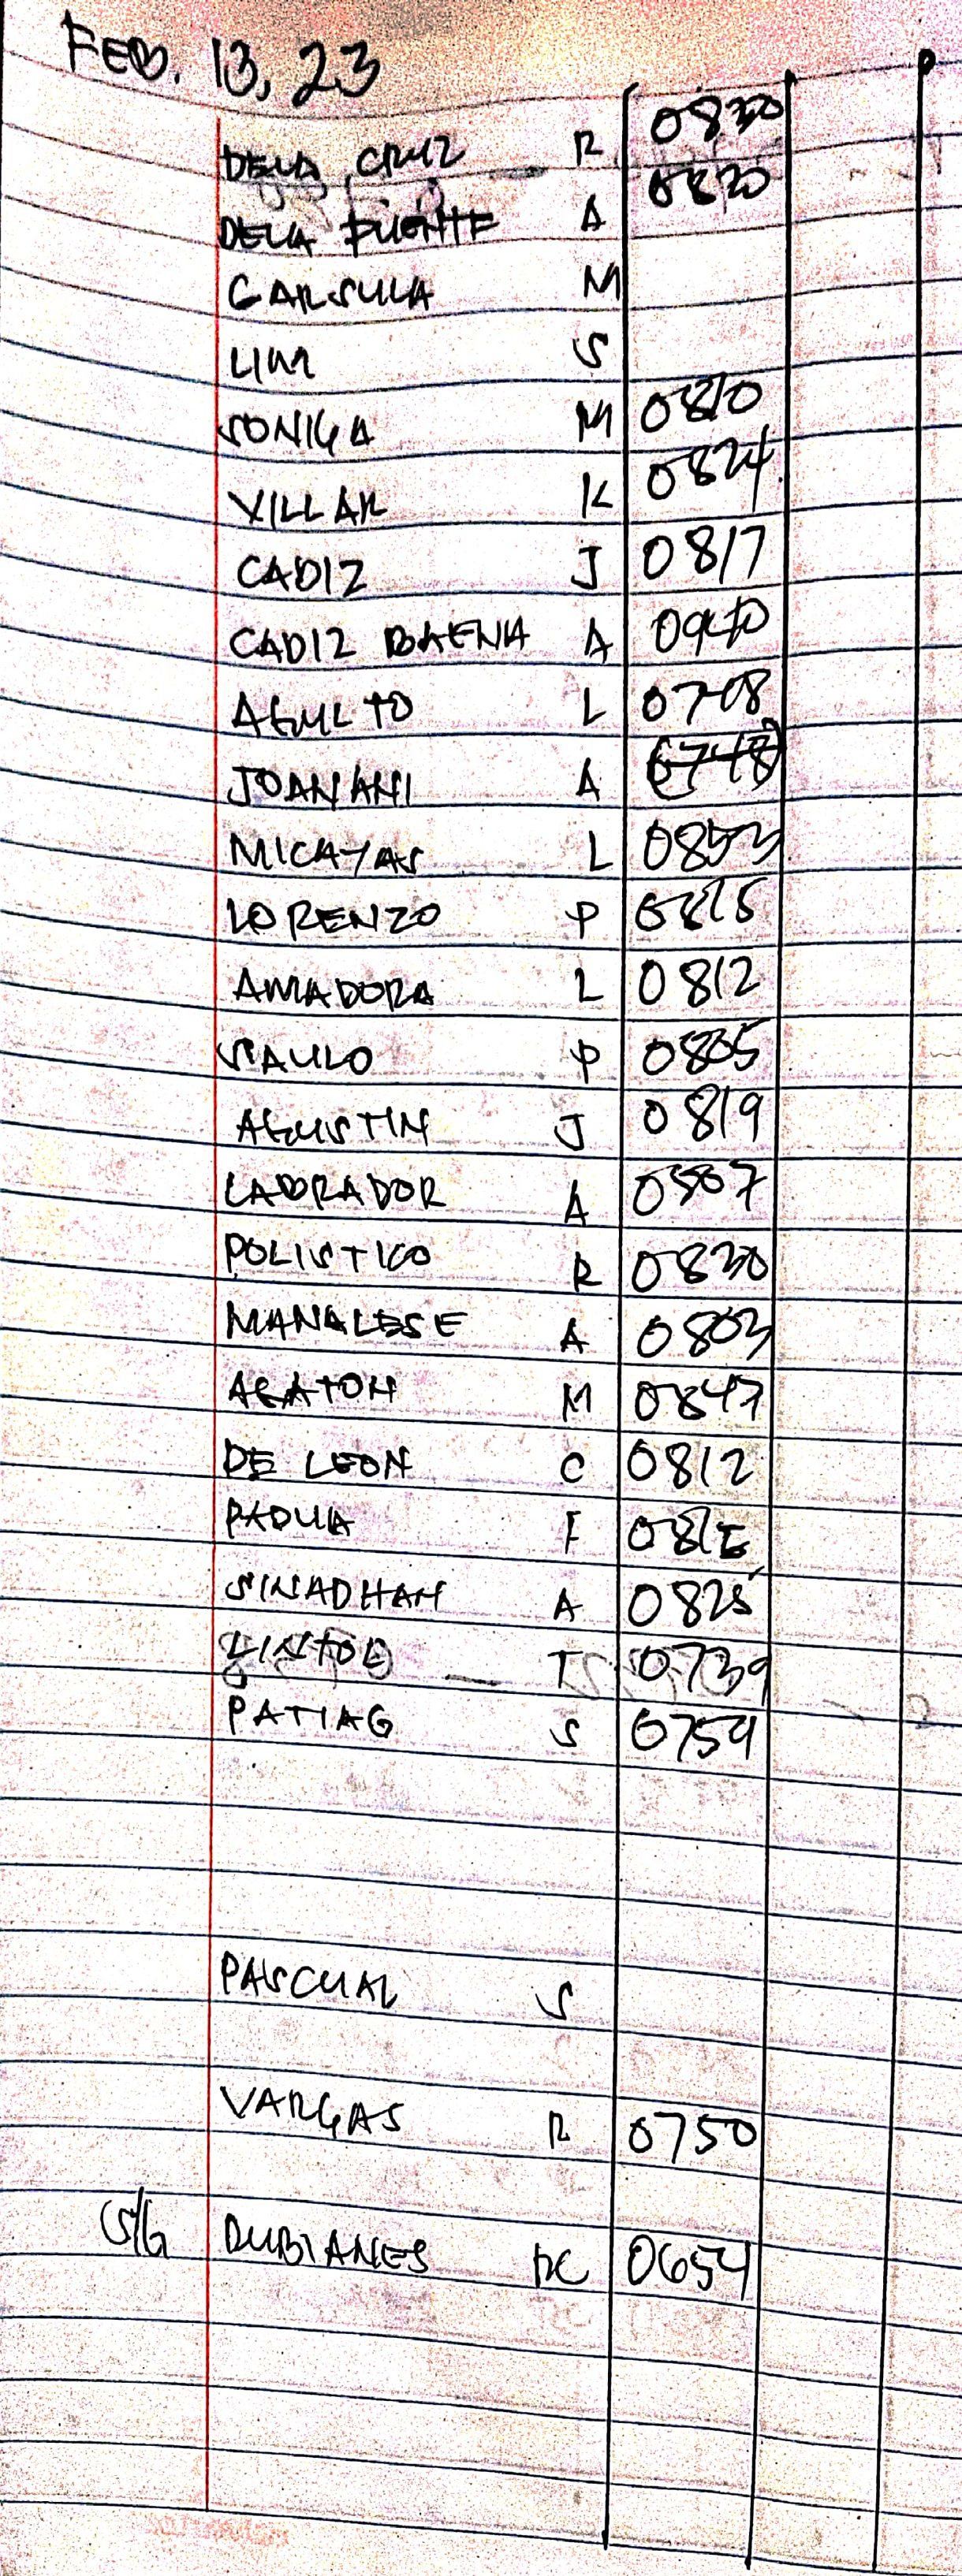 FEB. 13, 23
DELA CRUZ R 0830
DELA FUENTE A 0820
GARSULA M
LIM S
SONIGA M 0810
VILLAR K 0824
CADIZ J 0817
CADIZ BAENA A
AGULTO L 0748
JOANANI A 0748
MICAYAS L 0853
LORENZO P 0815
AMADORA L 0812
SAULO P 0805
AGUSTIN J 0819
LABRADOR A 0807
POLISTICO R 0830
MANALESE A 0803
AGATON M 0847
DE LEON C 0812
PADUA F
SINADHAN A 0825
T 0739
PATIAG S 0759
PASCUAL S
VARGAS R 0750
S/G RUBIANES RC 0654